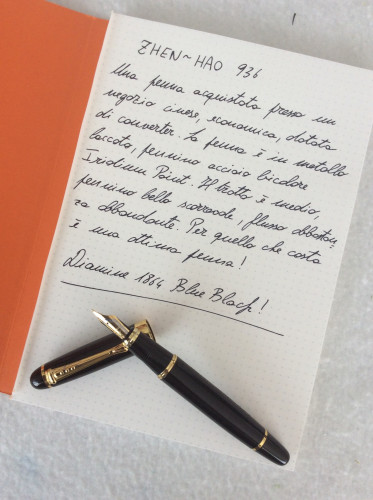 ZHEN~HAO 936
Una penna acquistata presso un
negozio cinese, economica, dotata
di converter. La penna è in metallo
laccato, pennino acciaio bicolore
Iridium Point. Il tratto è medio,
pennino bello scorrevole, flusso abbastan
za abbondante. Per quello che costa
è una ottima penna!
Diamine 1864 Blue Black!